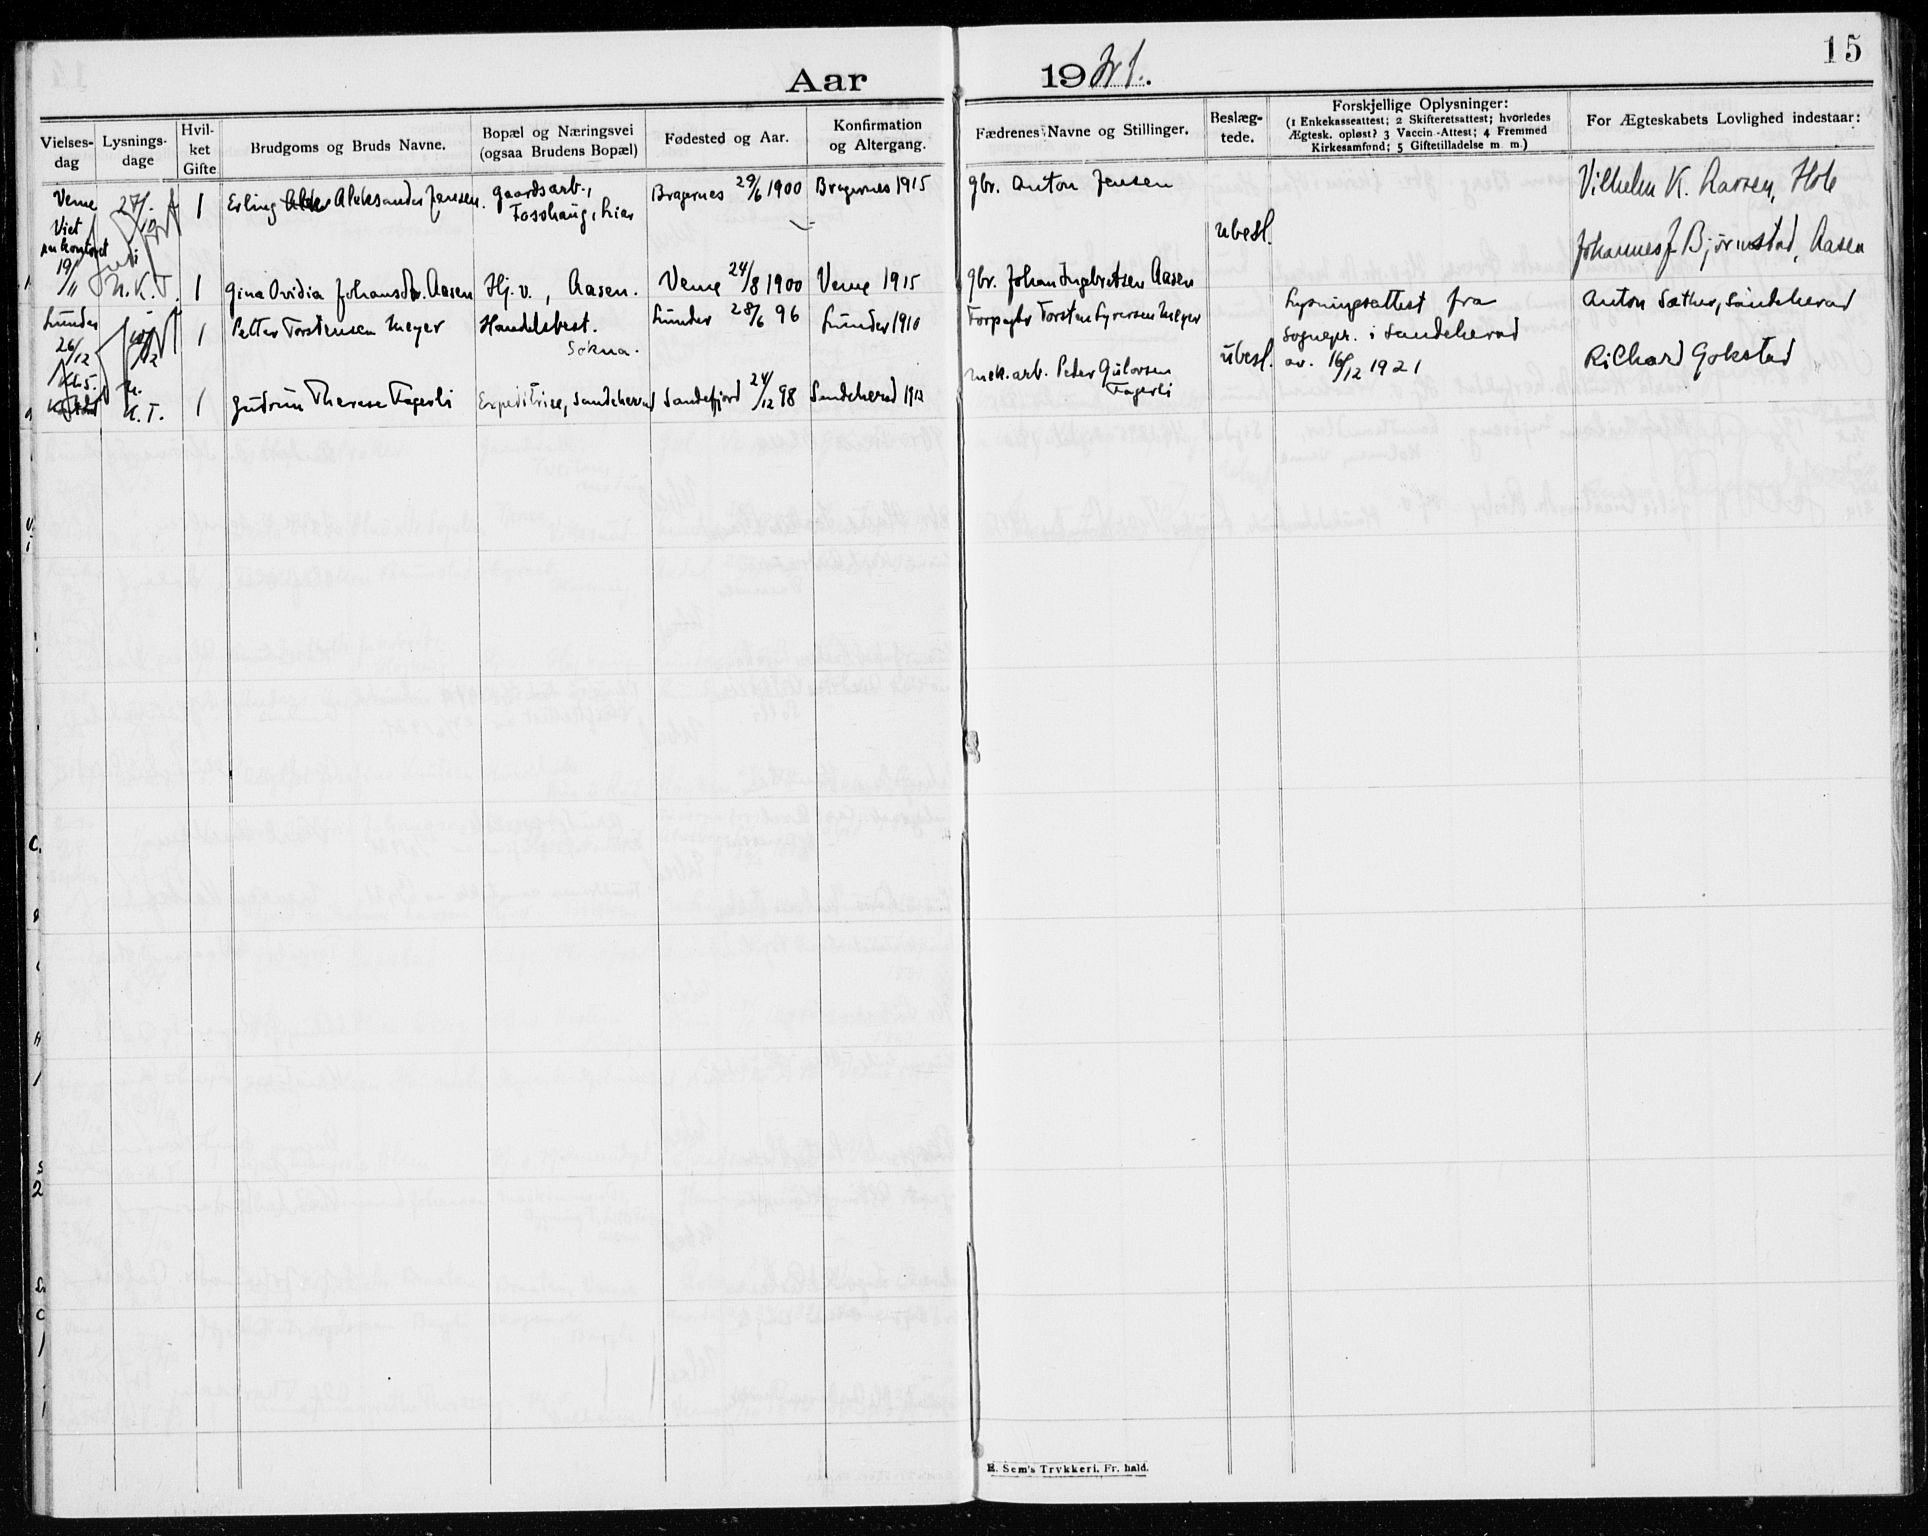 Aar 1921.
15
Vielses-dag
Lysnings-dage
Hvil-ket Gifte
Brudgoms og Bruds Navne.
Bopæl og Næringsvei (ogsaa Brudens Bopæl)
Fødested og Aar.
Konfirmation og Altergang.
Fædrenes Navne og Stillinger.
Beslæg-tede.
Forskjellige Oplysninger:
(1 Enkekasseattest; 2 Skifteretsattest; hvorledes
Ægtesk. opløst? 3 Vaccin-Attest; 4 Fremmed
Kirkesamfund; 5 Giftetilladelse m. m.)
For Ægteskabets Lovlighed indestaar:
Veme 27/ 1 Erling Aleksander Jensen. Gaardsarb., Bragernes 29/6 1900 Bragernes 1915 gbr. Anton Jensen Vilhelm K. Larsen, Hole
Viet Fosshaug, Lier
19/11 ubesl. Johannes J Bjørnstad, Aasen
N.K.T. 1 Gina Ovidia Johansdtr. Aasen Hj.v., Aasen. Veme 24/8 1900 Veme 1915 gbr. Johan Ingebretsen Aasen
Lunder 1 Petter Torstensen Meyer Handelsbest. Lunder 28/6 96 Lunder 1910 Forpagter Torsten Syversen Meyer Lysningsattest fra Anton Sæther, Sandeherad
26/12 Sokna. sognepr. i Sandeherad
Kl. 5. ubesl. av 16/12 1921 Richard Gokstad
K.T. 1 Gudrun Therese Fagerli Expeditrise, Sandeherad Sandefjord 24/12 98 Sandeherad 1913 mek. arb. Peder Gulovsen
Fagerli
E. Sem's Trykkeri, Fr. hald.